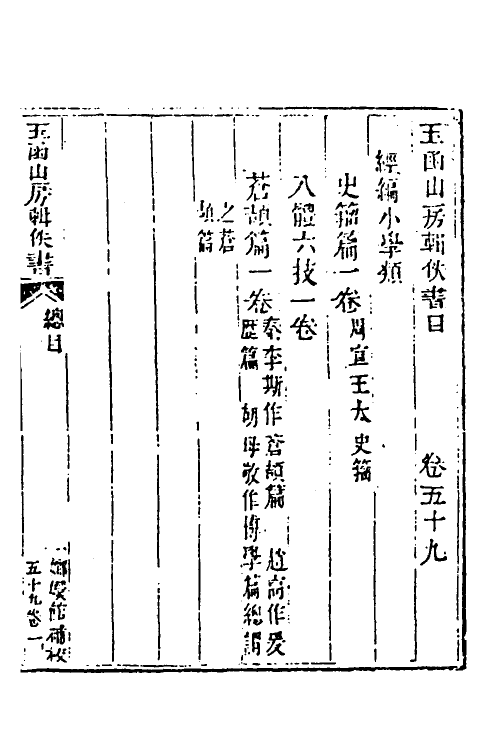 玉函山房輯佚書目　卷五十九
經編小學類
史籀篇一卷周宣王太史籀
八體六技一卷
蒼頡篇一卷秦李斯作蒼頡篇　趙高作爰
歷篇　胡母敬作博學篇總謂
之蒼
頡篇
玉函山房輯佚書
總目
五十九卷一
嫏嬛館補校